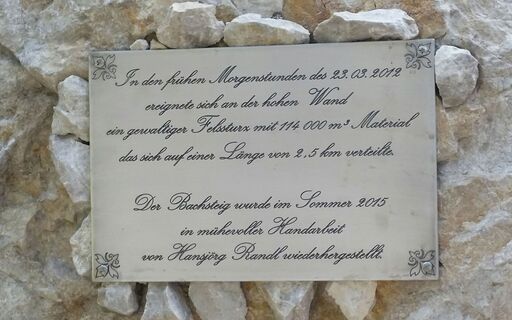 In den frühen Morgenstunden des 23.03.2012
ereignete sich an der hohen Wand
ein gewaltiger Felssturz mit 114 000 m³ Material
das sich auf einer Länge von 2,5 km verteilte.
Der Bachsteig wurde im Sommer 2015
in mühevoller Handarbeit
von Hansjörg Randl wiederhergestellt.